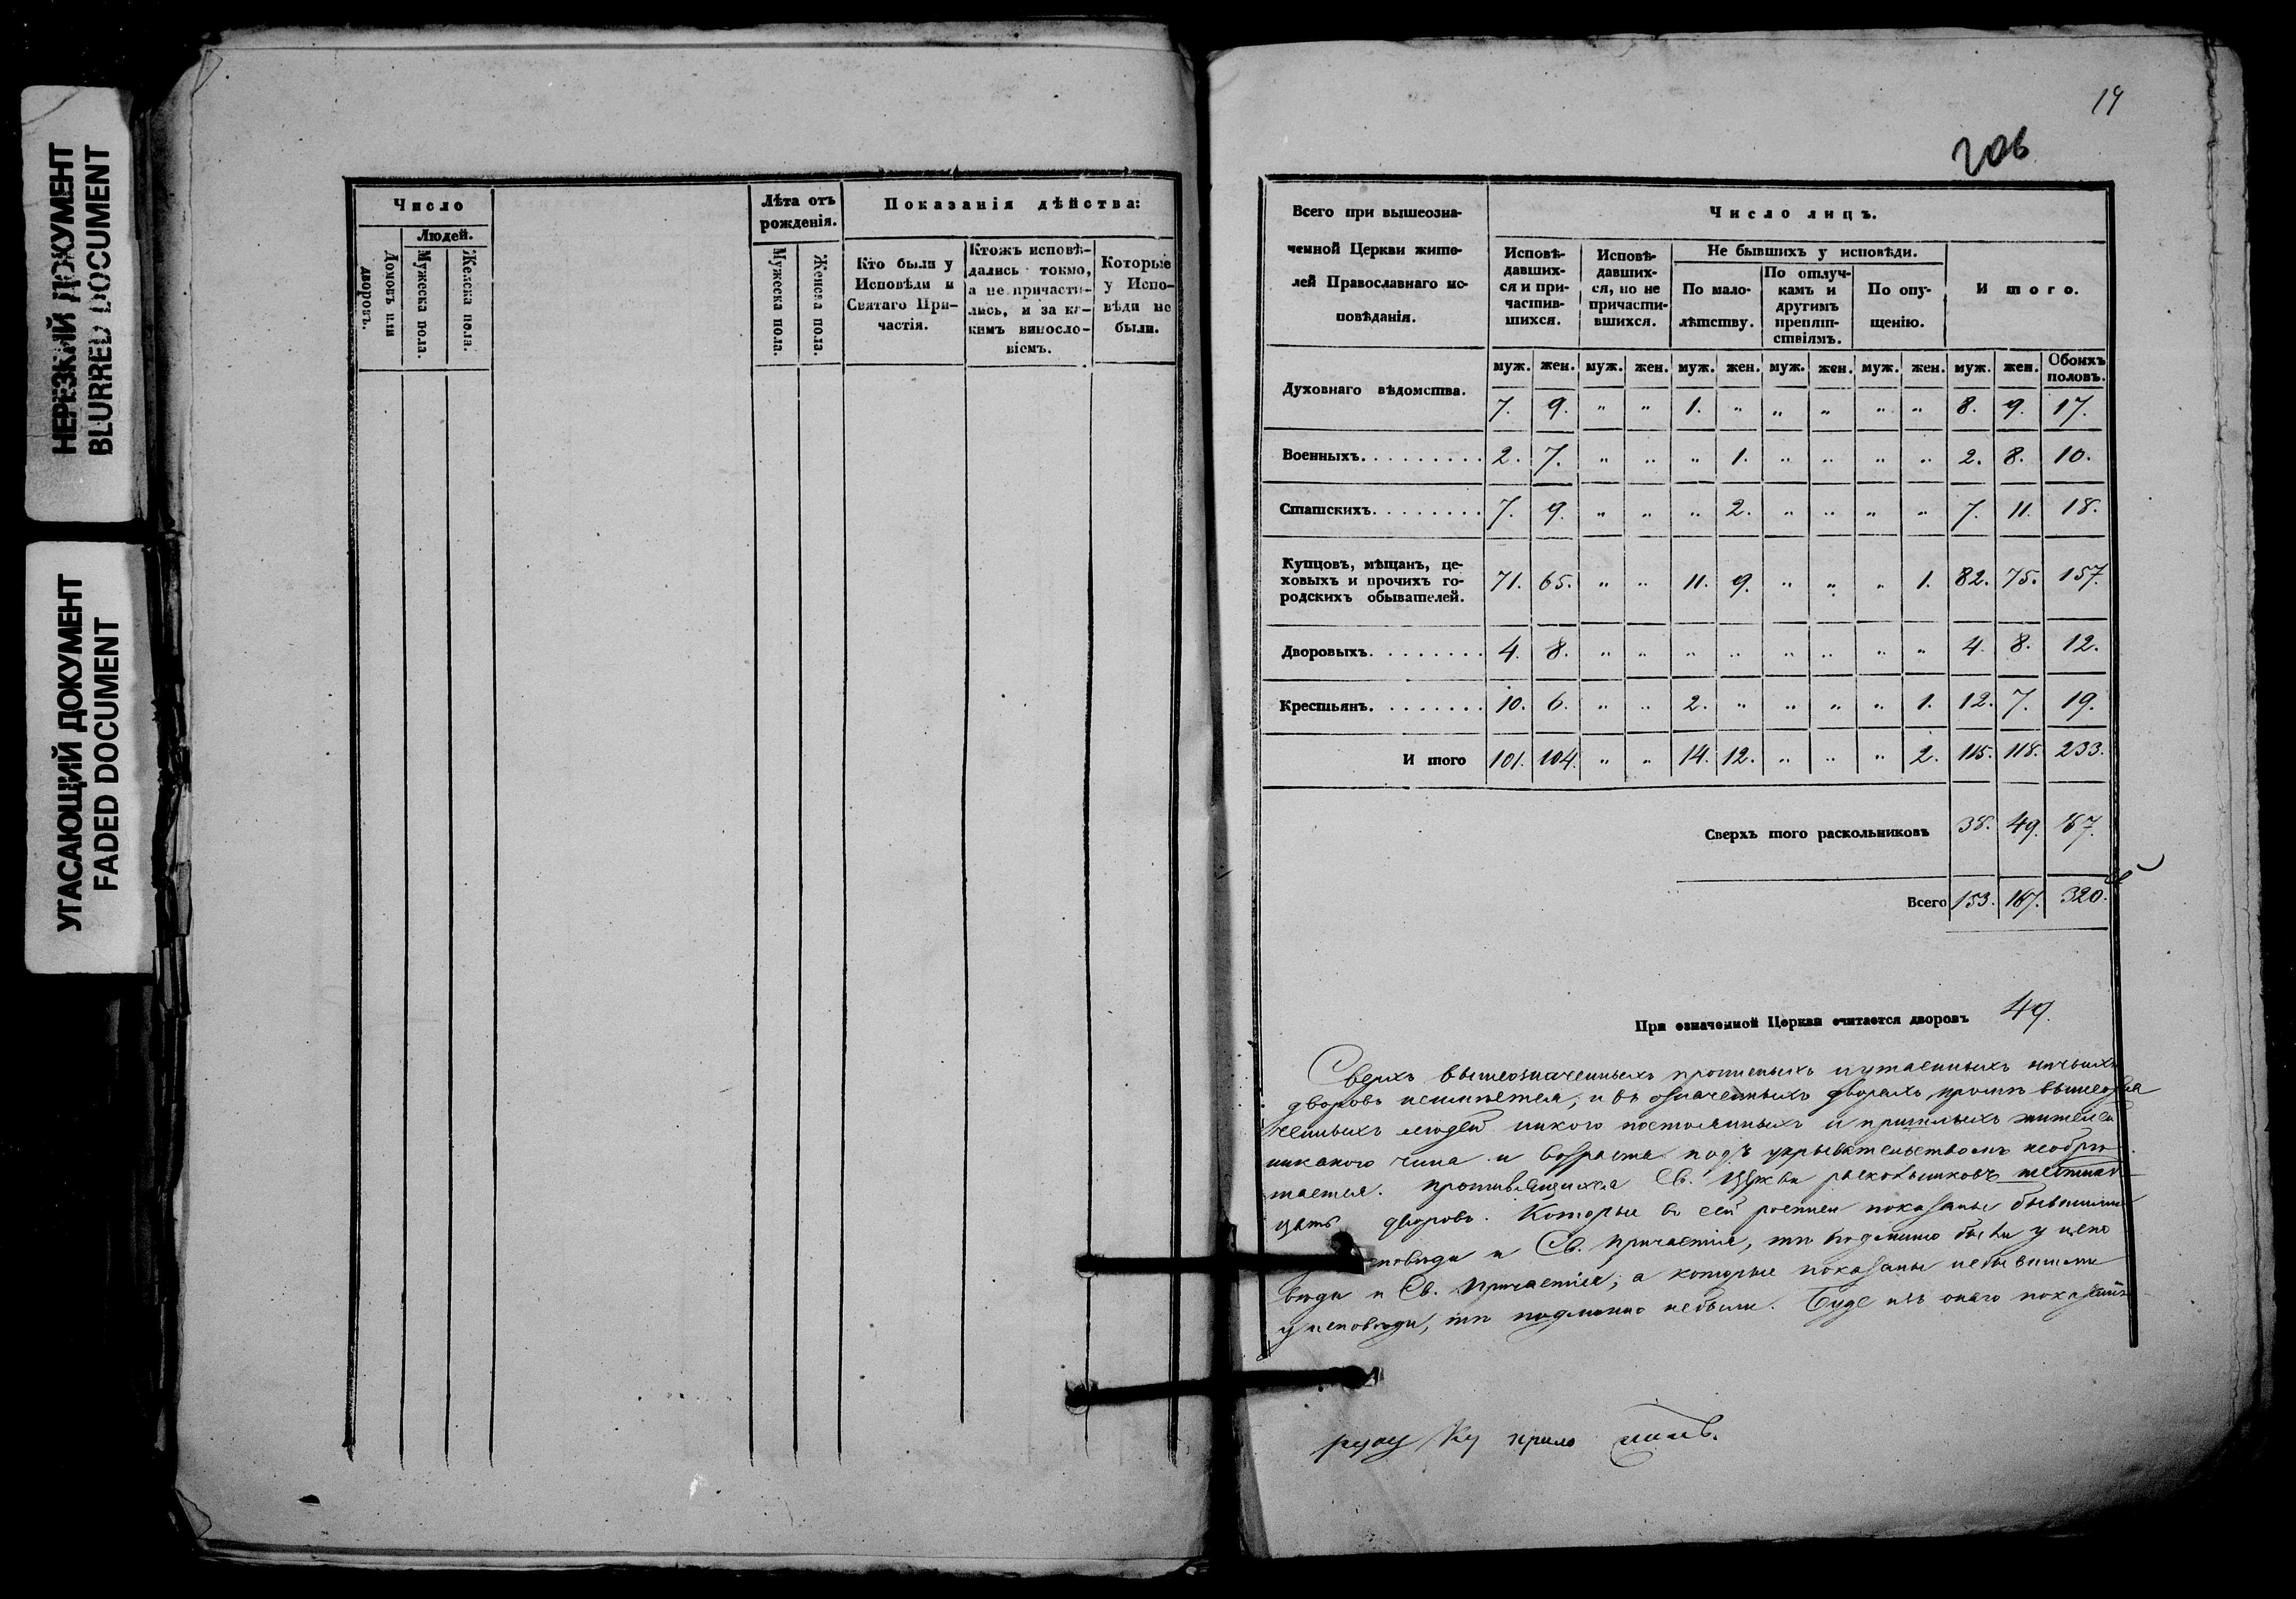 НЕРЕЗКИЙ ДОКУМЕНТ
BLURRED DOCUMENT
УГАСАЮЩИЙ ДОКУМЕНТ
FADED DOCUMENT
Число
Людей.
Домовъ или дворовъ.
Мужеска пола.
Женска пола.
Лѣта отъ
рожденія.
Мужеска пола.
Женска пола.
Показанія дѣйства:
Кто были у
Исповѣди и
Святаго При-
частія.
Ктожъ исповѣ-
дались токмо,
а не причасти-
лись, и за ка-
кимъ винносло-
віемъ.
Которые
у Испо-
вѣди не
были.
19
206
Всего при вышеозна-
ченной Церкви жите-
лей Православнаго ис-
повѣданія.
Число лицъ.
Исповѣ-
давших-
ся и при-
частив-
шихся.
Исповѣ-
давших-
ся, но не
причасти-
вшихся.
Не бывшихъ у исповѣди.
По мало-
лѣтству.
По отлуч-
камъ и
другимъ
препят-
ствіямъ.
По опу-
щенію.
И того.
муж. жен. муж. жен. муж. жен. муж. жен. муж. жен. муж. жен. Обоихъ половъ.
Духовнаго вѣдомства. 7. 9. " " 1. " " " " " 8. 9. 17.
Военныхъ. . . . . . . . . 2. 7. " " " 1. " " " " 2. 8. 10.
Статскихъ. . . . . . . . 7. 9. " " " 2. " " " " 7. 11. 18.
Купцовъ, мѣщанъ, це-
ховыхъ и прочихъ го-
родскихъ обывателей. 71. 65. " " 11. 9. " " " 1. 82. 75. 157.
Дворовыхъ. . . . . . . . 4. 8. " " " " " " " " 4. 8. 12.
Крестьянъ. . . . . . . . 10. 6. " " 2. " " " " 1. 12. 7. 19.
И того 101. 104. " " 14. 12. " " " 2. 115. 118. 233.
Сверхъ того раскольниковъ 38. 49. 87.
Всего 153. 167. 320.
При означенной Церкви считается дворовъ 49.
Сверхъ вышеозначенныхъ прописныхъ и утаенныхъ ничьихъ
дворовъ неимѣется, и въ означенныхъ дворахъ, кромѣ вышеозна
ченныхъ людей никого постоянныхъ и пришлыхъ жителей
никакого чина и возраста подъ укрывательствомъ необрѣ-
тается. Противящихся Св. Церкви раскольниковъ шестнад-
цать дворовъ. Которые въ сей росписи показаны бывшими
исповѣди и Св. Причастія, тѣ подлинно были у испо
вѣди и Св. Причастія, а которые показаны небывшими
у исповѣди, тѣ подлинно небыли. Буде изъ онаго показанія
руку Ку прило